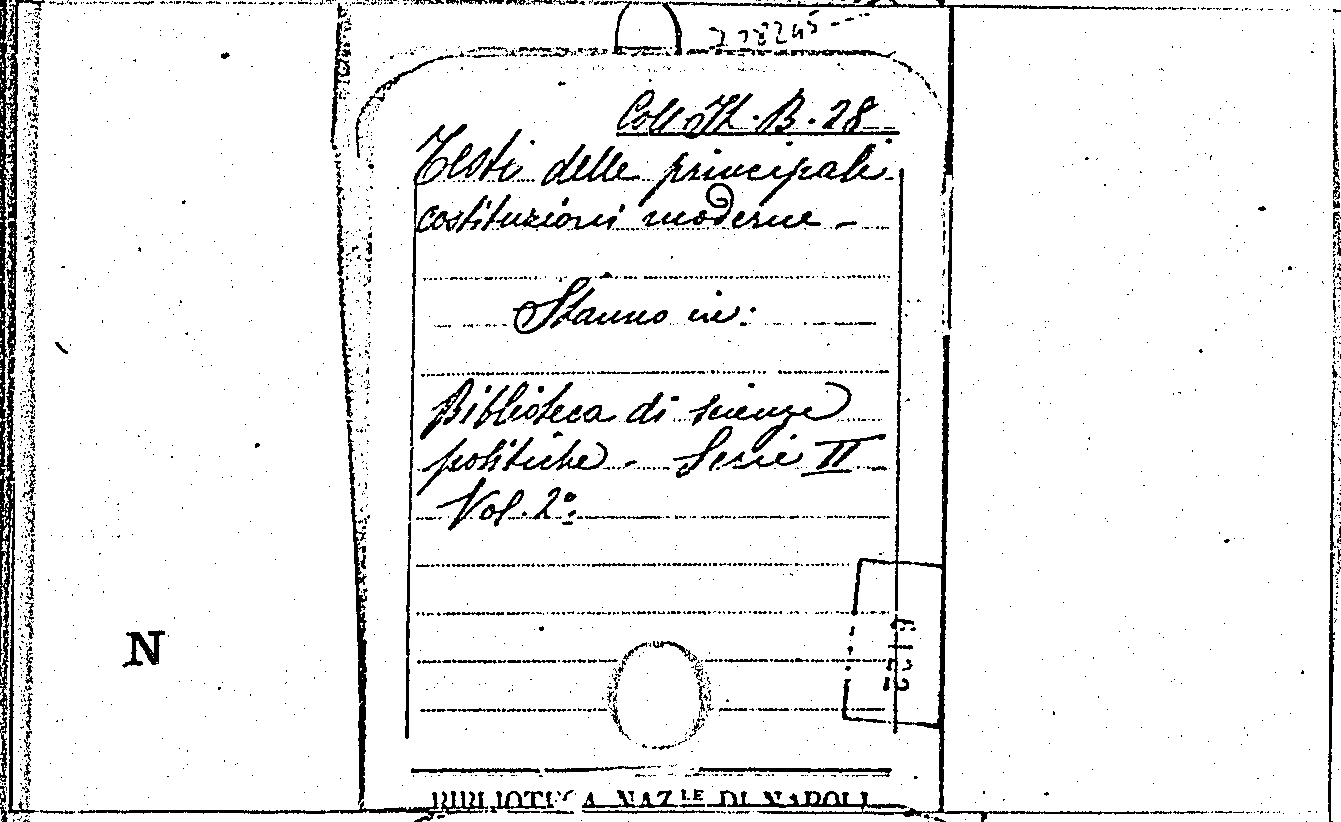 778245
Coll. It. B. 28
Testi delle principali
costituzioni moderne -
Stanno in:
Biblioteca di scienze
politiche - Serie II
Vol. 2º:
N
BIBLIOTECA NAZ.LE DI NAPOLI